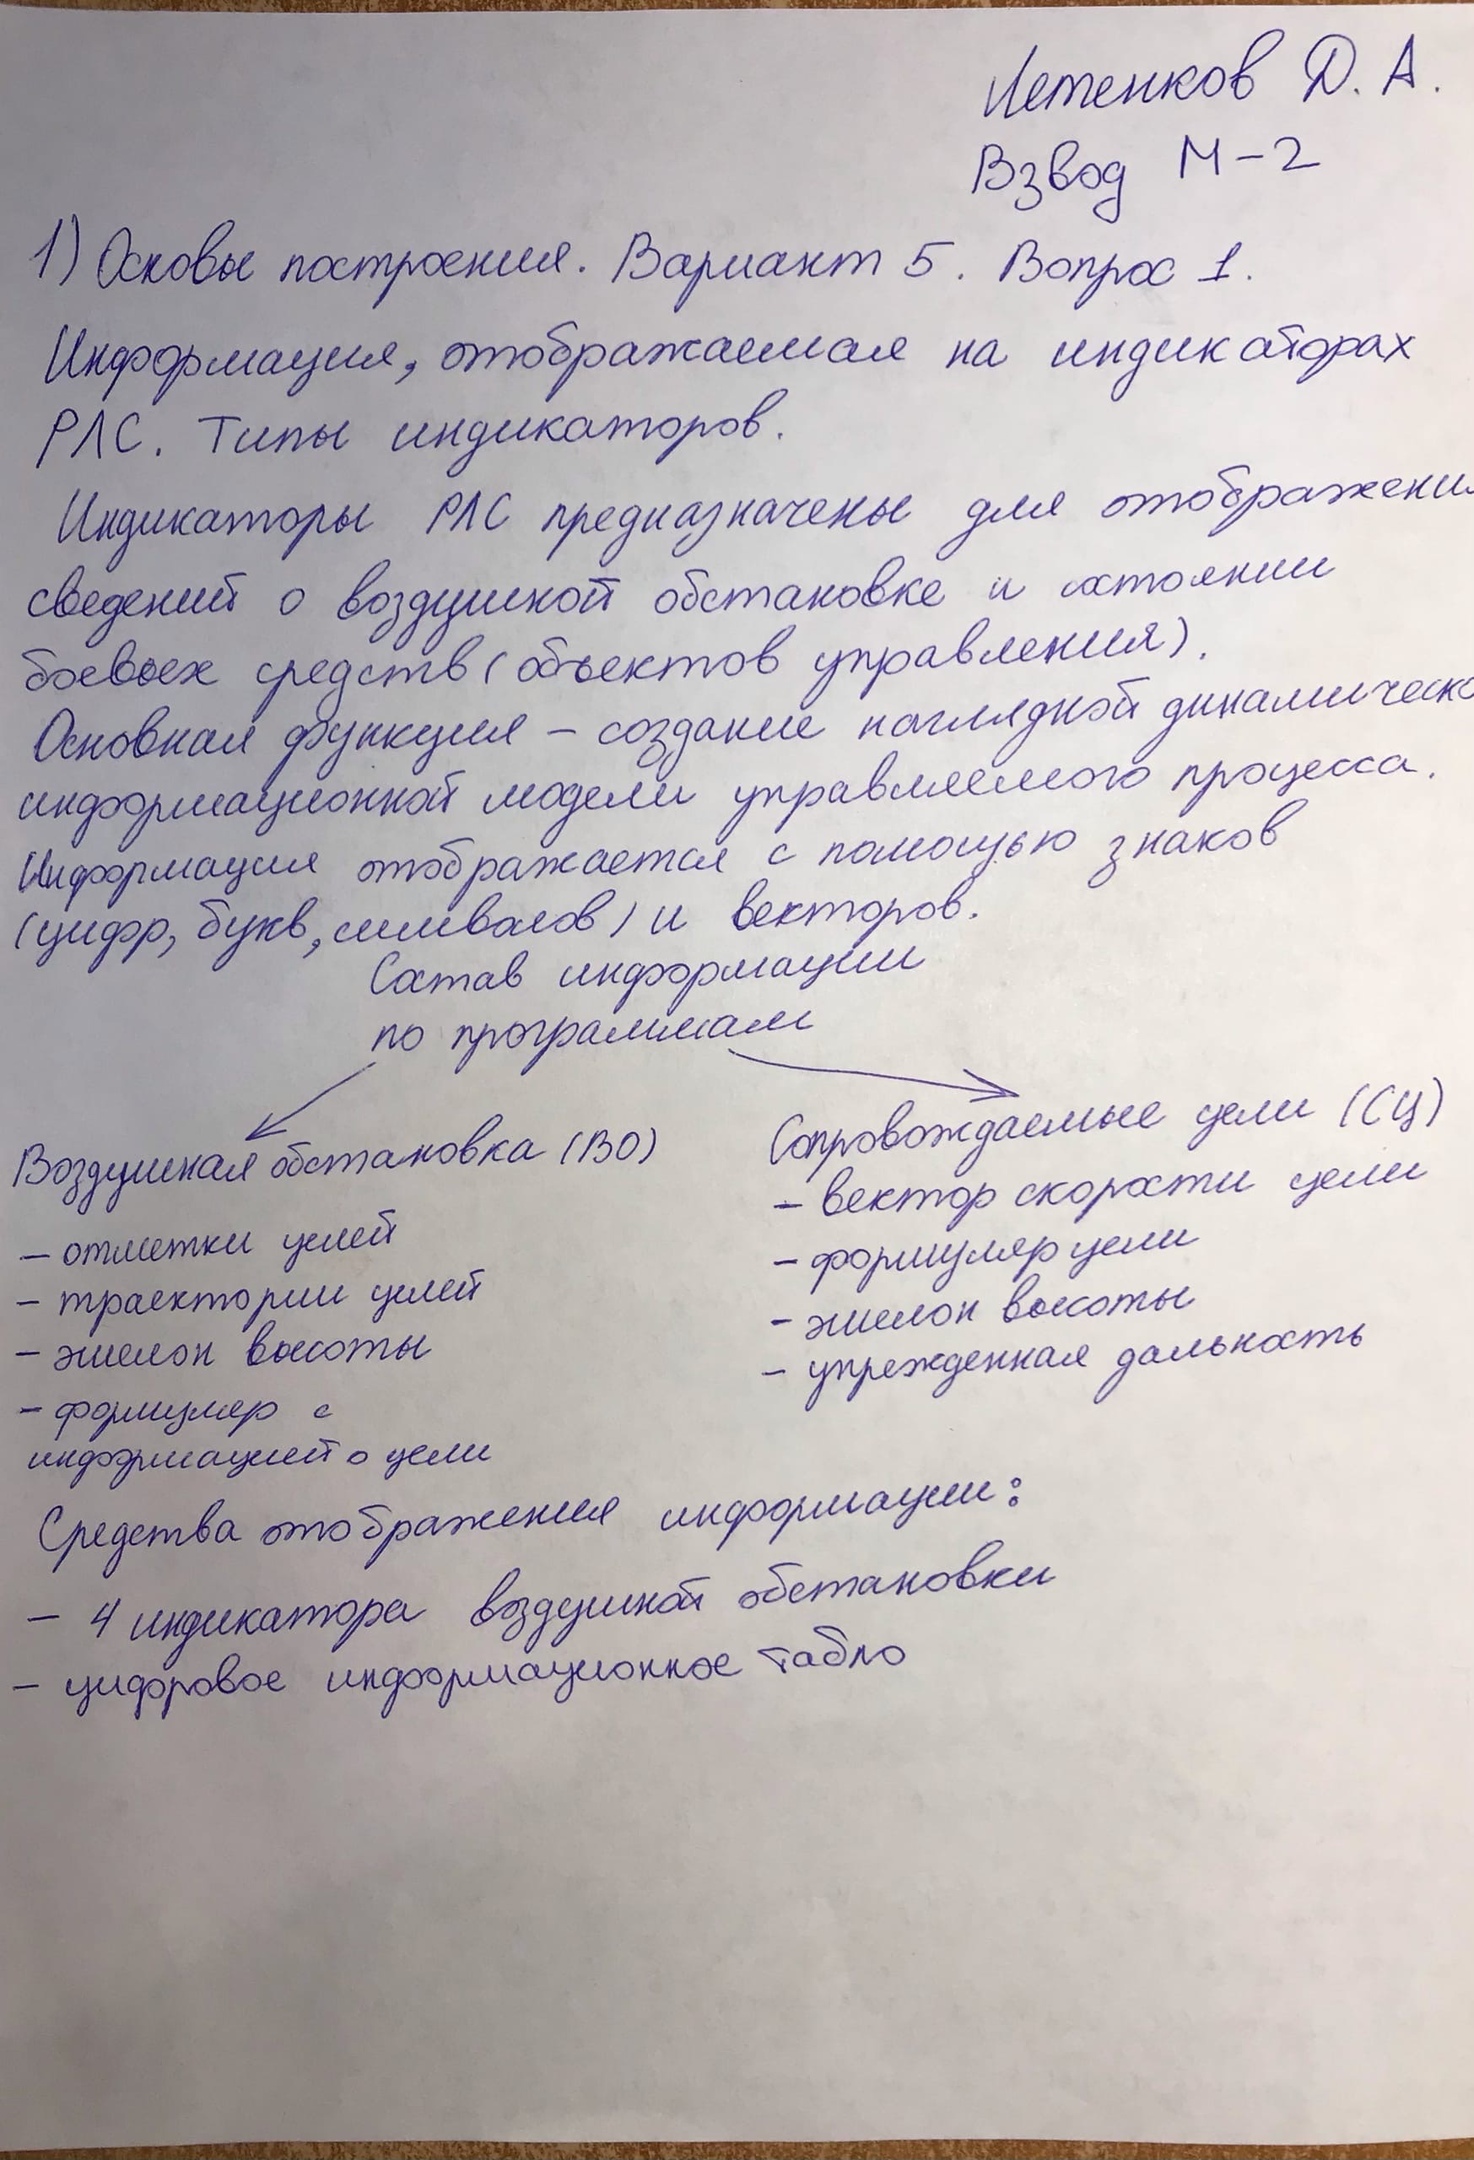 Летенков Д. А.
Взвод М-2
1) Основы построения. Вариант 5. Вопрос 1.
Информация, отображаемая на индикаторах
РЛС. Типы индикаторов.
Индикаторы РЛС предназначены для отображени
сведений о воздушной обстановке и состоянии
боевых средств (объектов управления).
Основная функция – создание наглядной динамическо
информационной модели управляемого процесса.
Информация отображается с помощью знаков
(цифр, букв, символов) и векторов.
Состав информации
по программам
Воздушная обстановка (ВО)
– отметки целей
– траектории целей
– эшелон высоты
– формуляр с
информацией о цели
Сопровождаемые цели (СЦ)
– вектор скорости цели
– формуляр цели
– эшелон высоты
– упрежденная дальность
Средства отображения информации:
– 4 индикатора воздушной обстановки
– цифровое информационное табло